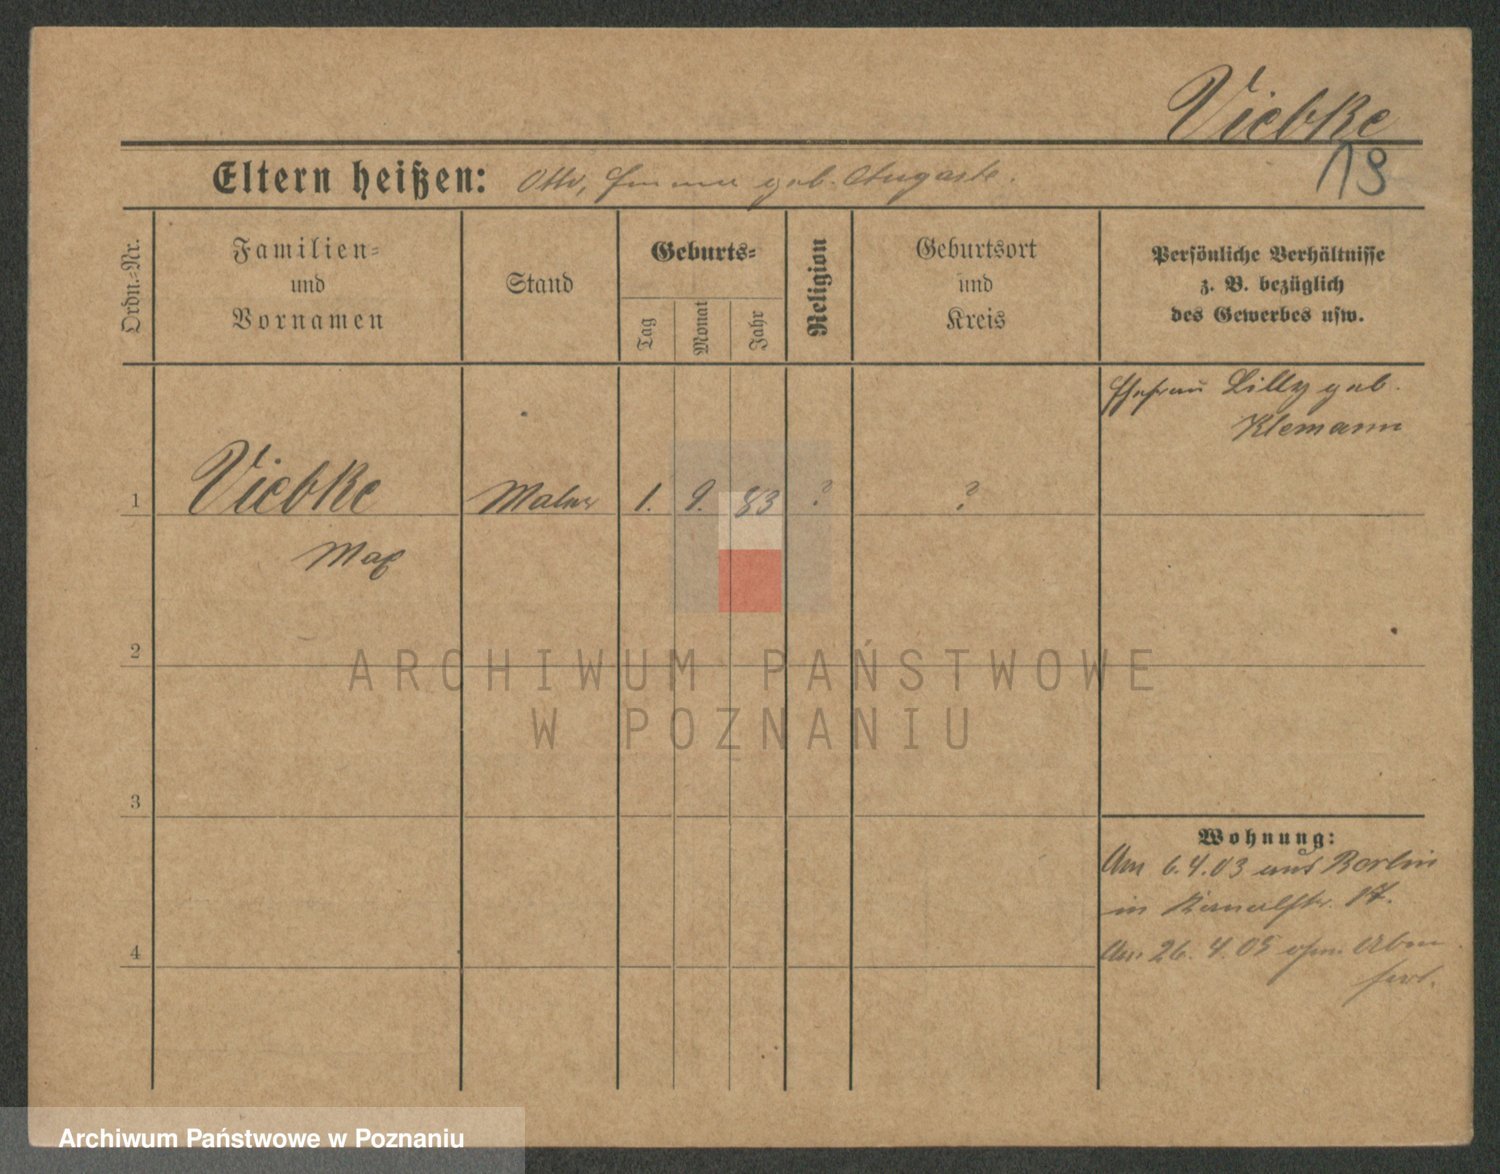 Viebke
19
Eltern heißen: Otto, Emma geb. Auguste.
Ordn.=Nr.
Familien=
und
Vornamen
Stand
Geburts=
Tag
Monat
Jahr
Religion
Geburtsort
und
Kreis
Persönliche Verhältnisse
z. B. bezüglich
des Gewerbes usw.
Ehefrau Lilly geb.
Klemann
1 Viebke Maler 1. 9. 83 ? ?
Max
2
ARCHIWUM PAŃSTWOWE
W POZNANIU
3
Wohnung:
Am 6.4.03 aus Berlin
in Kanalstr. 17.
4
Am 26.4.05 ohne Abm
fort.
Archiwum Państwowe w Poznaniu